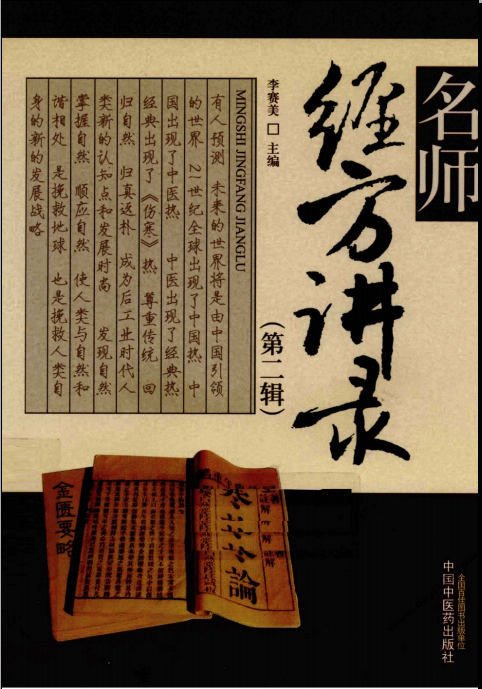 名师
经方讲录
（第二辑）
李赛美 □ 主编
MINGSHI JINGFANG JIANGLU
有人预测 未来的世界将是由中国引领
的世界 21世纪全球出现了中国热 中
国出现了中医热 中医出现了经典热
经典出现了《伤寒》热 尊重传统 回
归自然 归真返朴 成为后工业时代人
类新的认知点和发展时尚 发现自然
掌握自然 顺应自然 使人类与自然和
谐相处 是挽救地球 也是挽救人类自
身的新的发展战略
金匮要略
寒
論
註解
全国百佳图书出版单位
中国中医药出版社